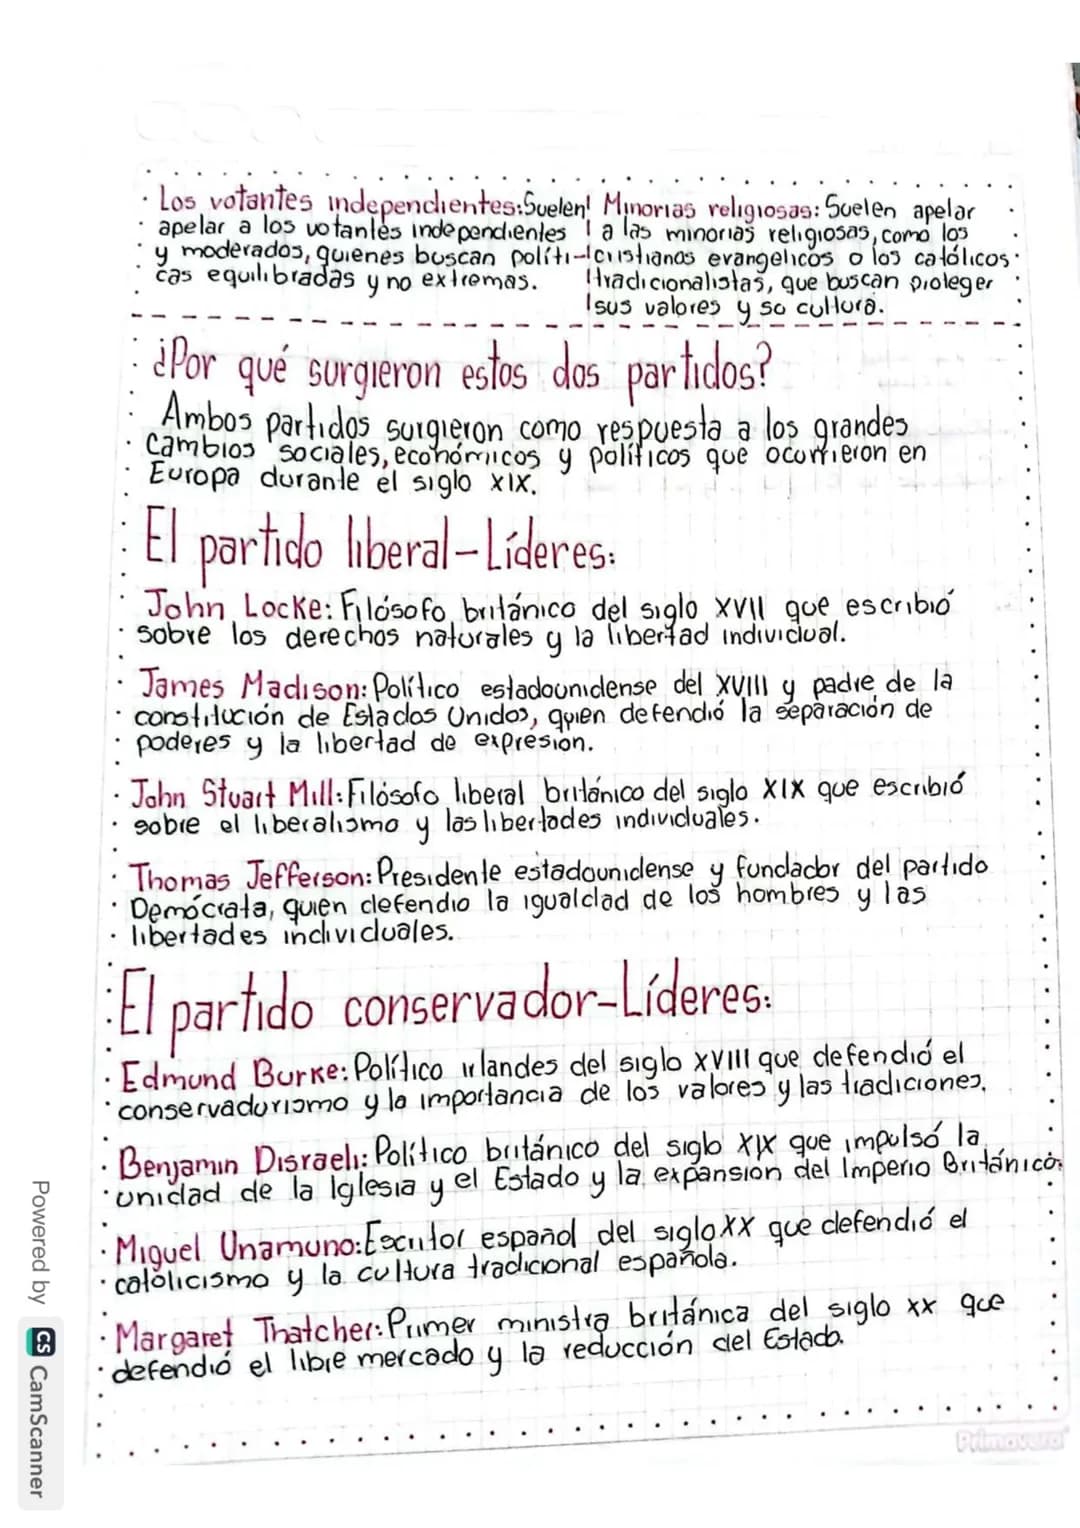 Los votantes independientes: Suelen
apelar a los votantes independientes
y moderados, quienes buscan políti-
cas equilibradas y no extremas.
Minorias religiosas: Suelen apelar
a las minorias religiosas, como los
cristianos evangelicos o los católicos
tradicionalistas, que buscan proteger
sus valores y so cultura.
¿Por qué surgieron estos dos partidos?
Ambos partidos surgieron como respuesta a los grandes
Cambios sociales, económicos y políticos que ocurrieron en
Europa durante el siglo XIX.
El partido liberal-Líderes:
John Locke: Filósofo británico del siglo XVII que escribió
sobre los derechos naturales y la libertad individual.
James Madison: Político estadounidense del XVIII y padre de la
constitución de Estados Unidos, quien defendió la separación de
poderes y la libertad de expresion.
John Stuart Mill: Filósofo liberal británico del siglo XIX que escribió
sobre el liberalismo y las libertades individuales.
Thomas Jefferson: Presidente estadounidense y fundador del partido
Demócrata, quien defendio la igualdad de los hombres y las
libertades individuales.
El partido conservador-Líderes:
Edmund Burke: Político irlandes del siglo XVIII que defendió el
conservadurismo y la importancia de los valores y las tradiciones.
Benjamin Disraeli: Político británico del siglo XIX que impulsó la
unidad de la Iglesia y el Estado y la expansion del Imperio Británico.
Miguel Unamuno: Escritor español del siglo XX que defendió el
catolicismo y la cultura tradicional española.
Margaret Thatcher: Primer ministra británica del siglo XX que
defendió el libre mercado y la reducción del Estado.
Primavera
Powered by CS CamScanner